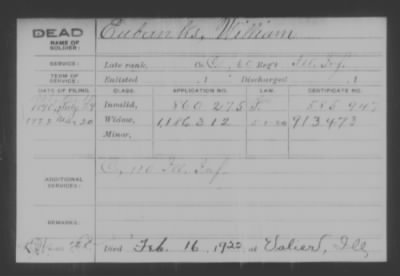 DEAD
NAME OF SOLDIER: Eubanks, William
SERVICE: Late rank, Co. C, 60 Reg't Ill. Inf.
TERM OF SERVICE: Enlisted , 1 Discharged , 1
DATE OF FILING. CLASS. APPLICATION NO. LAW. CERTIFICATE NO.
1890, July Invalid, 800 275 585 947
1922 Mar. 20 Widow, 1,186312 913473
Minor,
ADDITIONAL SERVICES: Ill. Inf.
REMARKS:
Died Feb. 16, 1922, at Valier, Ill